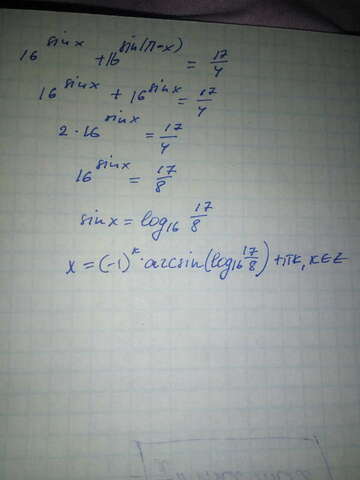 16^{sin x} + 16^{sin(π-x)} = 17/4
16^{sin x} + 16^{sin x} = 17/4
2 · 16^{sin x} = 17/4
16^{sin x} = 17/8
sin x = log₁₆ 17/8
x = (-1)^к · arcsin(log₁₆ 17/8) + πк, к∈Z